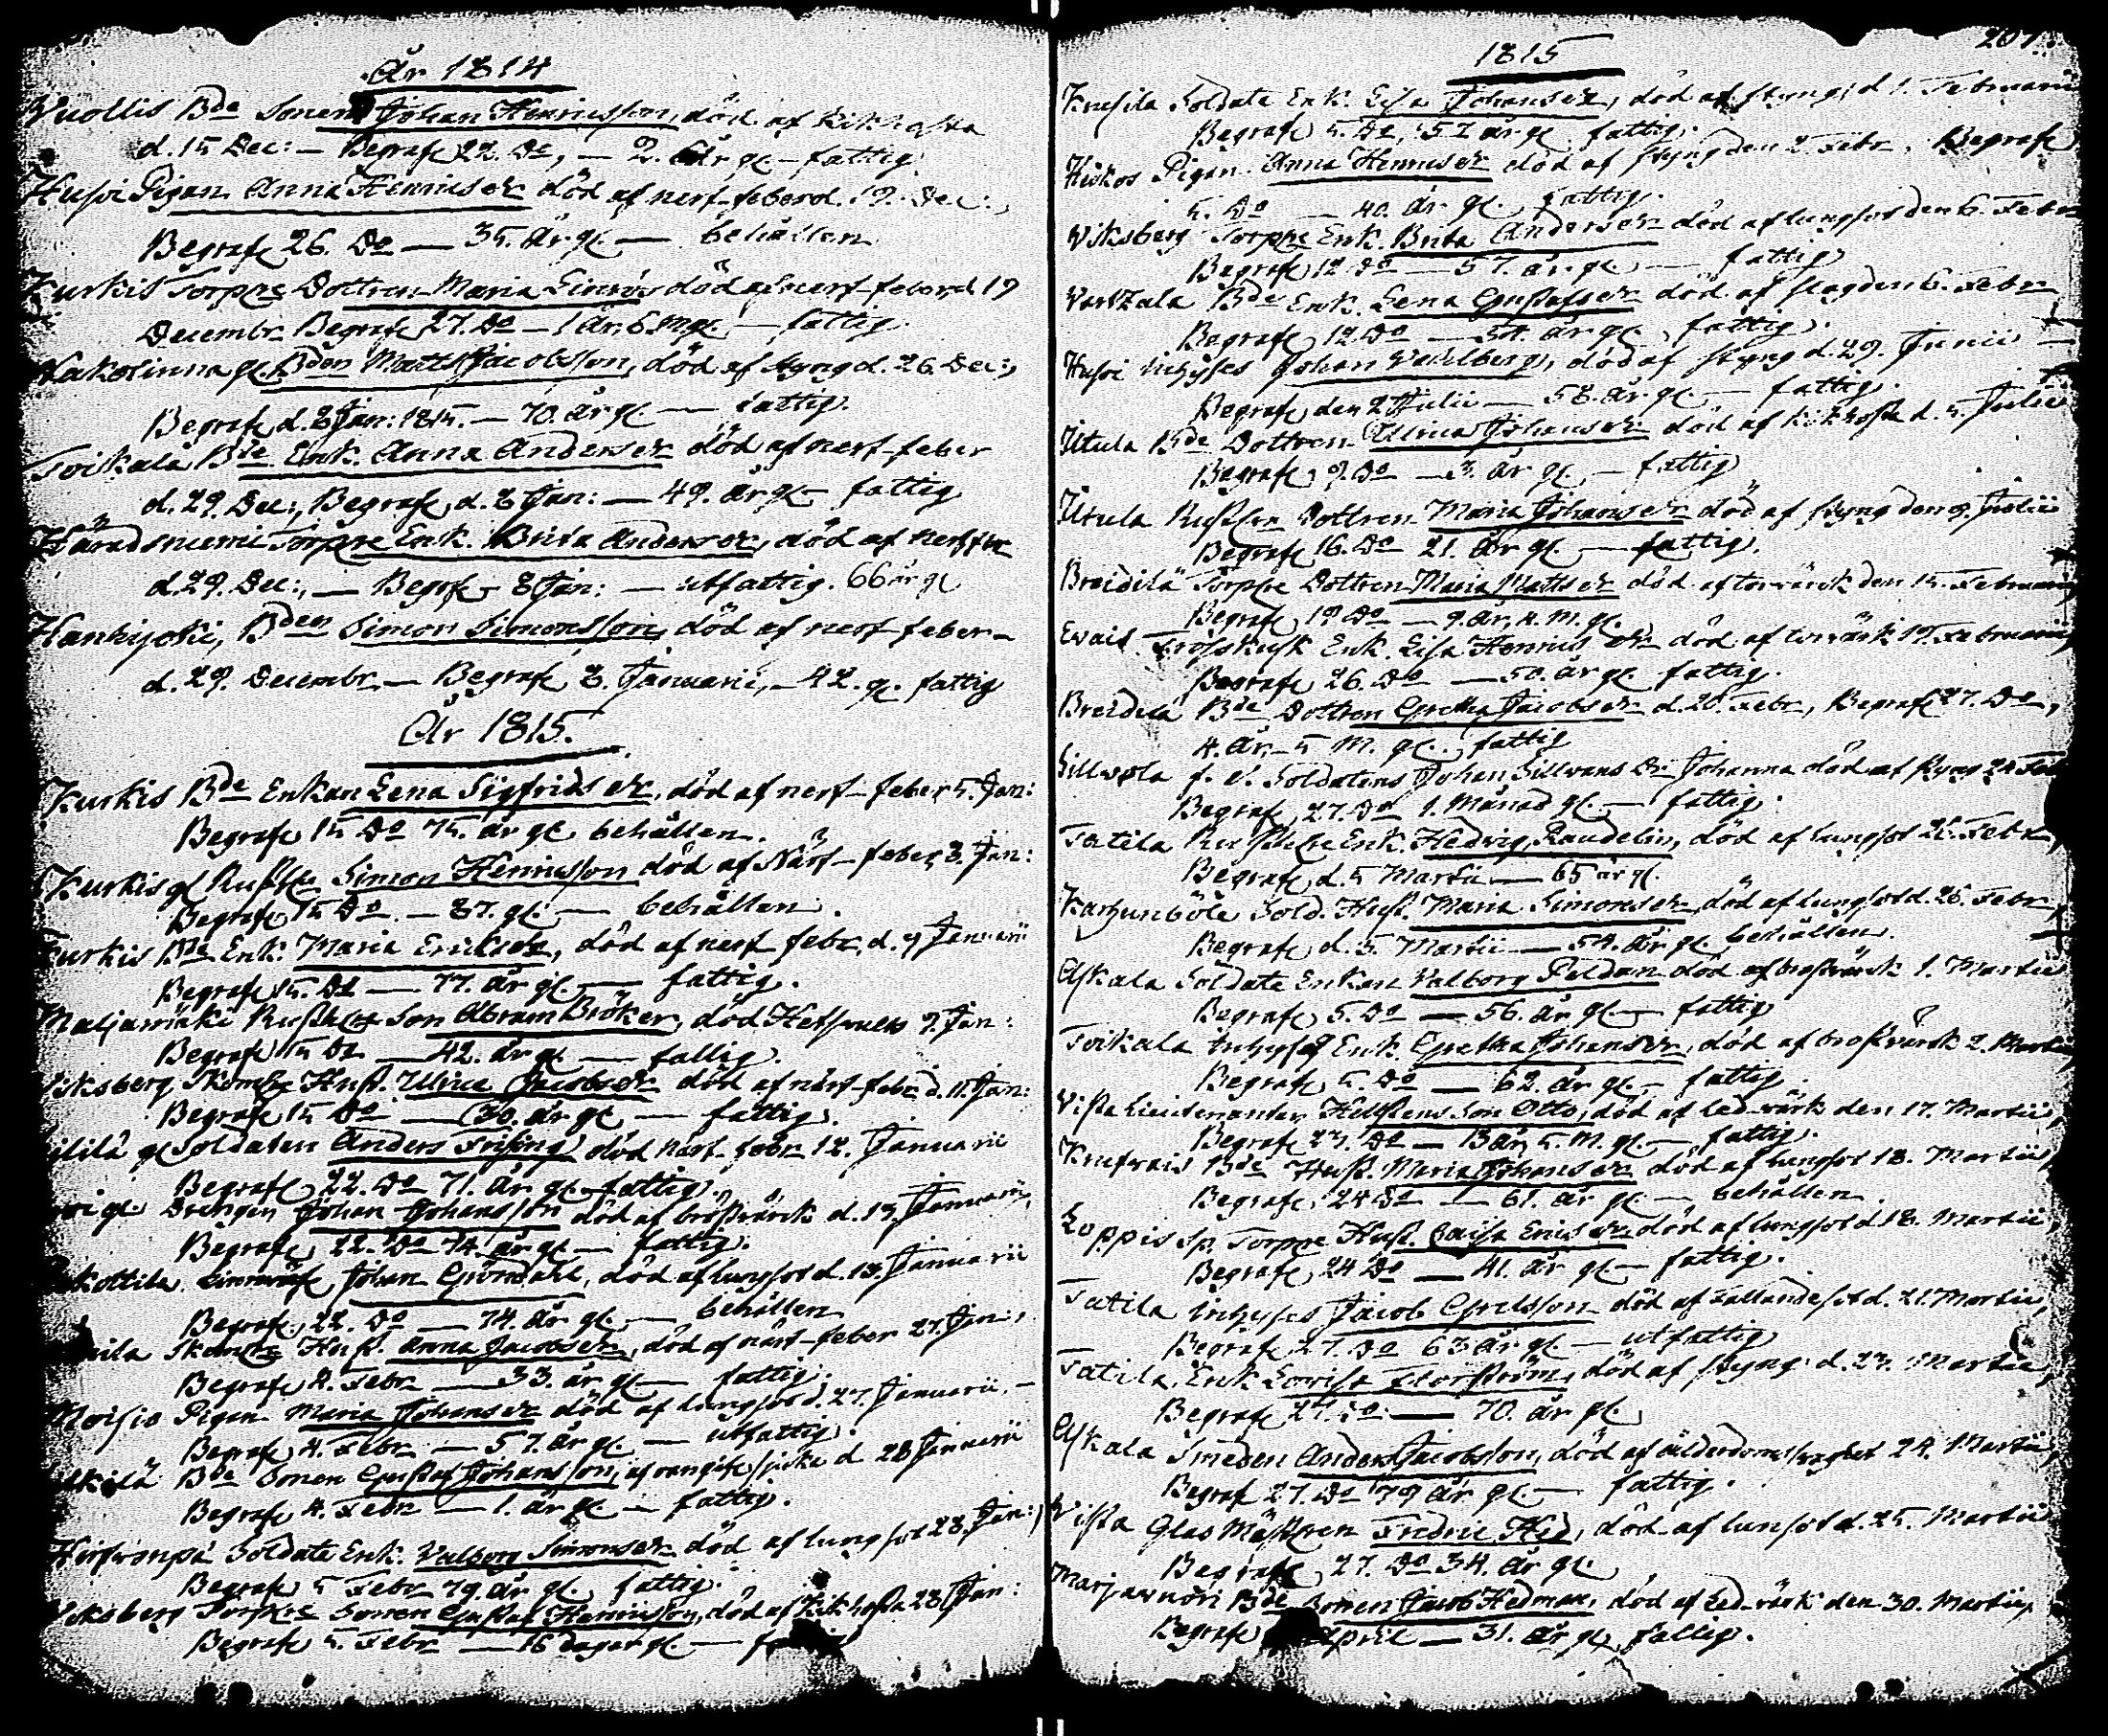 År 1814
Vuollis Bde Sonen Johan Henricsson, död af kikhosta
d. 15 Dec: — Begrafs 22. Do, — 2. År gl. — fattig
Husoi Pigan Anna Henricsdr död af nerf-feber d. 19. Dec:,
Begrafs 26. Do — 35. År gl. — behållen
Kurkis Torpre Dottren Maria Simonsdr död af nerf-feber, d 19
Decembr. Begrafs 27. Do — 1 År. 6. M. gl. — fattig.
gl. Bden Matts Jacobsson, död af styng d. 26. Dec:,
Begrafs d. 8 Jan: 1815. — 70. år gl. — fattig.
Toikala Bde Enk. Anna Andersdr död af nerf-feber
d. 29. Dec:, Begrafs, d. 8 Jan: — 49. år gl. — fattig
Torpre Enk. Brita Andersdr, död af
d. 29. Dec:, — Begrafs 8 Jan: — utfattig. 66 år gl
Hankijoki, Bden Simon Simonsson, död af nerf-feber —
d. 29. Decembr. — Begrafs 8. Januarii, — 42. gl. fattig
År 1815.
Kurkis Bde Enkan Lena Sigfridsdr, död af nerf-feber, 5. Jan:
Begrafs 15 Do 75. år gl. behållen.
Kurkis gl Simon Henricsson död af Närf-feber, 8. Jan:
Begrafs 15 Do. — 87. gl. — behållen.
Kurkis Bde Enk: Maria Ericsdr, död af nerf febr. d. 9 Januarii
Begrafs 15. Do — 77. år gl. — fattig.
Son Abram Bröker, död 9. Jan:
Begrafs 15 Do — 42. år gl. — fattig.
Hust. Ulrica Jacobsdr död af närf-febr. d. 11. Jan:
Begrafs 15 Do — 30. år gl — fattig.
gl Soldaten Anders död närf-febr. 12. Januarii
Begrafs 22. Do 71. år gl. fattig.
gl. Drengen Johan Johansson död af bröstvärk d. 13. Januarii,
Begrafs 22. Do 74. år gl. — fattig.
Johan Gröndahl, död af lungsot d. 13. Januarii
Begrafs 22. Do — 74. år gl. — behållen
Hust. Anna Jacobsdr, död af närf-feber 27. Jan:,
Begrafs 4. Febr. — 33. år gl — fattig.
Moisio Pigan Maria Johansdr död af lungsot d. 27. Januarii, —
Begrafs 4. Febr. — 57. år gl. — utfattig.
Bde Sonen Gustaf Johansson, d 28 Januarii
Begrafs 4. Febr. — 1. år gl. — fattig.
Soldate Enk. Valborg Simonsdr död af lungsot 28. Jan:,
Begrafs 5 Febr. 79. år gl. fattig.
Viksberg Torpre Sonen Gustaf Henricsson, död af kikhosta 28 Jan:
Begrafs 5. Febr. — 16 dagar gl. —
207.
1815
Knesila Soldate Enk. Lisa Johansdr, död af styng, d 1. Februarii
Begrafs 5. Do, 57 år gl. fattig.
Hiskos Pigan Anna Henricsdr död af styng den 2 Febr. Begrafs
5. Do — 40. år gl. fattig.
Viksberg Torpre Enk. Brita Andersdr död af lungsot den 6. Febr
Begrafs 12. Do — 57. år gl. — fattig
Vartzala Bde Enk. Lena Gustafsdr död af slag den 6. Febr
Begrafs 12. Do — 54. år gl. fattig.
Husoi Inhyses Johan Vahlberg, död af styng d. 29. Junii —
Begrafs den 2 Julii — 58. år gl. — fattig.
Utula Bde Dottren Ulrica Johansdr död af kikhosta d. 5. Julii
Begrafs 9. Do — 3. år gl — fattig
Utula Dottren Maria Johansdr död af styng den 9. Julii
Begrafs 16. Do 21. år gl. — fattig.
Breidilä Torpre Dottren Maria Mattsdr död af torrvärk den 15. Februarii
Begrafs 19 Do — 9. år, 4. M. gl.
Enk. Lisa Henricsdr död af torrvärk 19. Februarii
Begrafs 26. Do — 50. år gl. fattig.
Breidilä Bde Dottren Gretha Jacobsdr d. 20. Febr., Begrafs 27. Do,
4. år, 5 M. gl., fattig
f. d. Soldatens Johan Sillvans Dr Johanna död af
Begrafs 27. Do 1. Månad gl. — fattig.
Tatila Enk. Hedvig Randelin, död af lungsot Febr.
Begrafs d. 5 Martii — 65 år gl.
Karhunböle Sold. Hust. Maria Simonsdr död af lungsot d. 26. Febr.
Begrafs d. 5. Martii — 54. år gl. behållen.
Askala Soldate Enkan Valborg död af bröstvärk 1. Martii
Begrafs 5. Do — 56. år gl. — fattig
Toikala Inhyses Enk. Gretha Johansdr, död af bröstvärk 2. Martii
Begrafs 5. Do — 62. år gl. — fattig.
Vista Lieutenanten Son Otto, död af Led-värk den 17. Martii,
Begrafs 23. Do — 13 år, 5. M. gl. — fattig.
Bde Hust. Maria Johansdr död af lungsot 18. Martii
Begrafs 24 Do — 61. år gl — behållen.
Loppis Sp. Torpre Hust. Caisa Ericsdr död af lungsot d 18. Martii,
Begrafs 24 Do — 41. år gl — fattig.
Tatila Inhyses Jacob Grelsson död af fallandesot d. 21. Martii,
Begrafs 27. Do 63 år gl. — utfattig
Tatila, Enk Lovisa Florström, död af styng d. 23. Martii,
Begrafs 27. Do — 70. år gl.
Askala Smeden Anders Jacobsson, död af ålderdomsswaghet 24. Martii,
Begraf 27. Do 79 år gl. — fattig.
Vista Glas Mästaren Fredric Hed, död af lunsot d. 25. Martii
Begrafs 27. Do 34. år gl.
Bde Sonen Jacob Hedman, död af Led-värk den 30. Martii,
Begrafs April — 31. år gl. fattig.